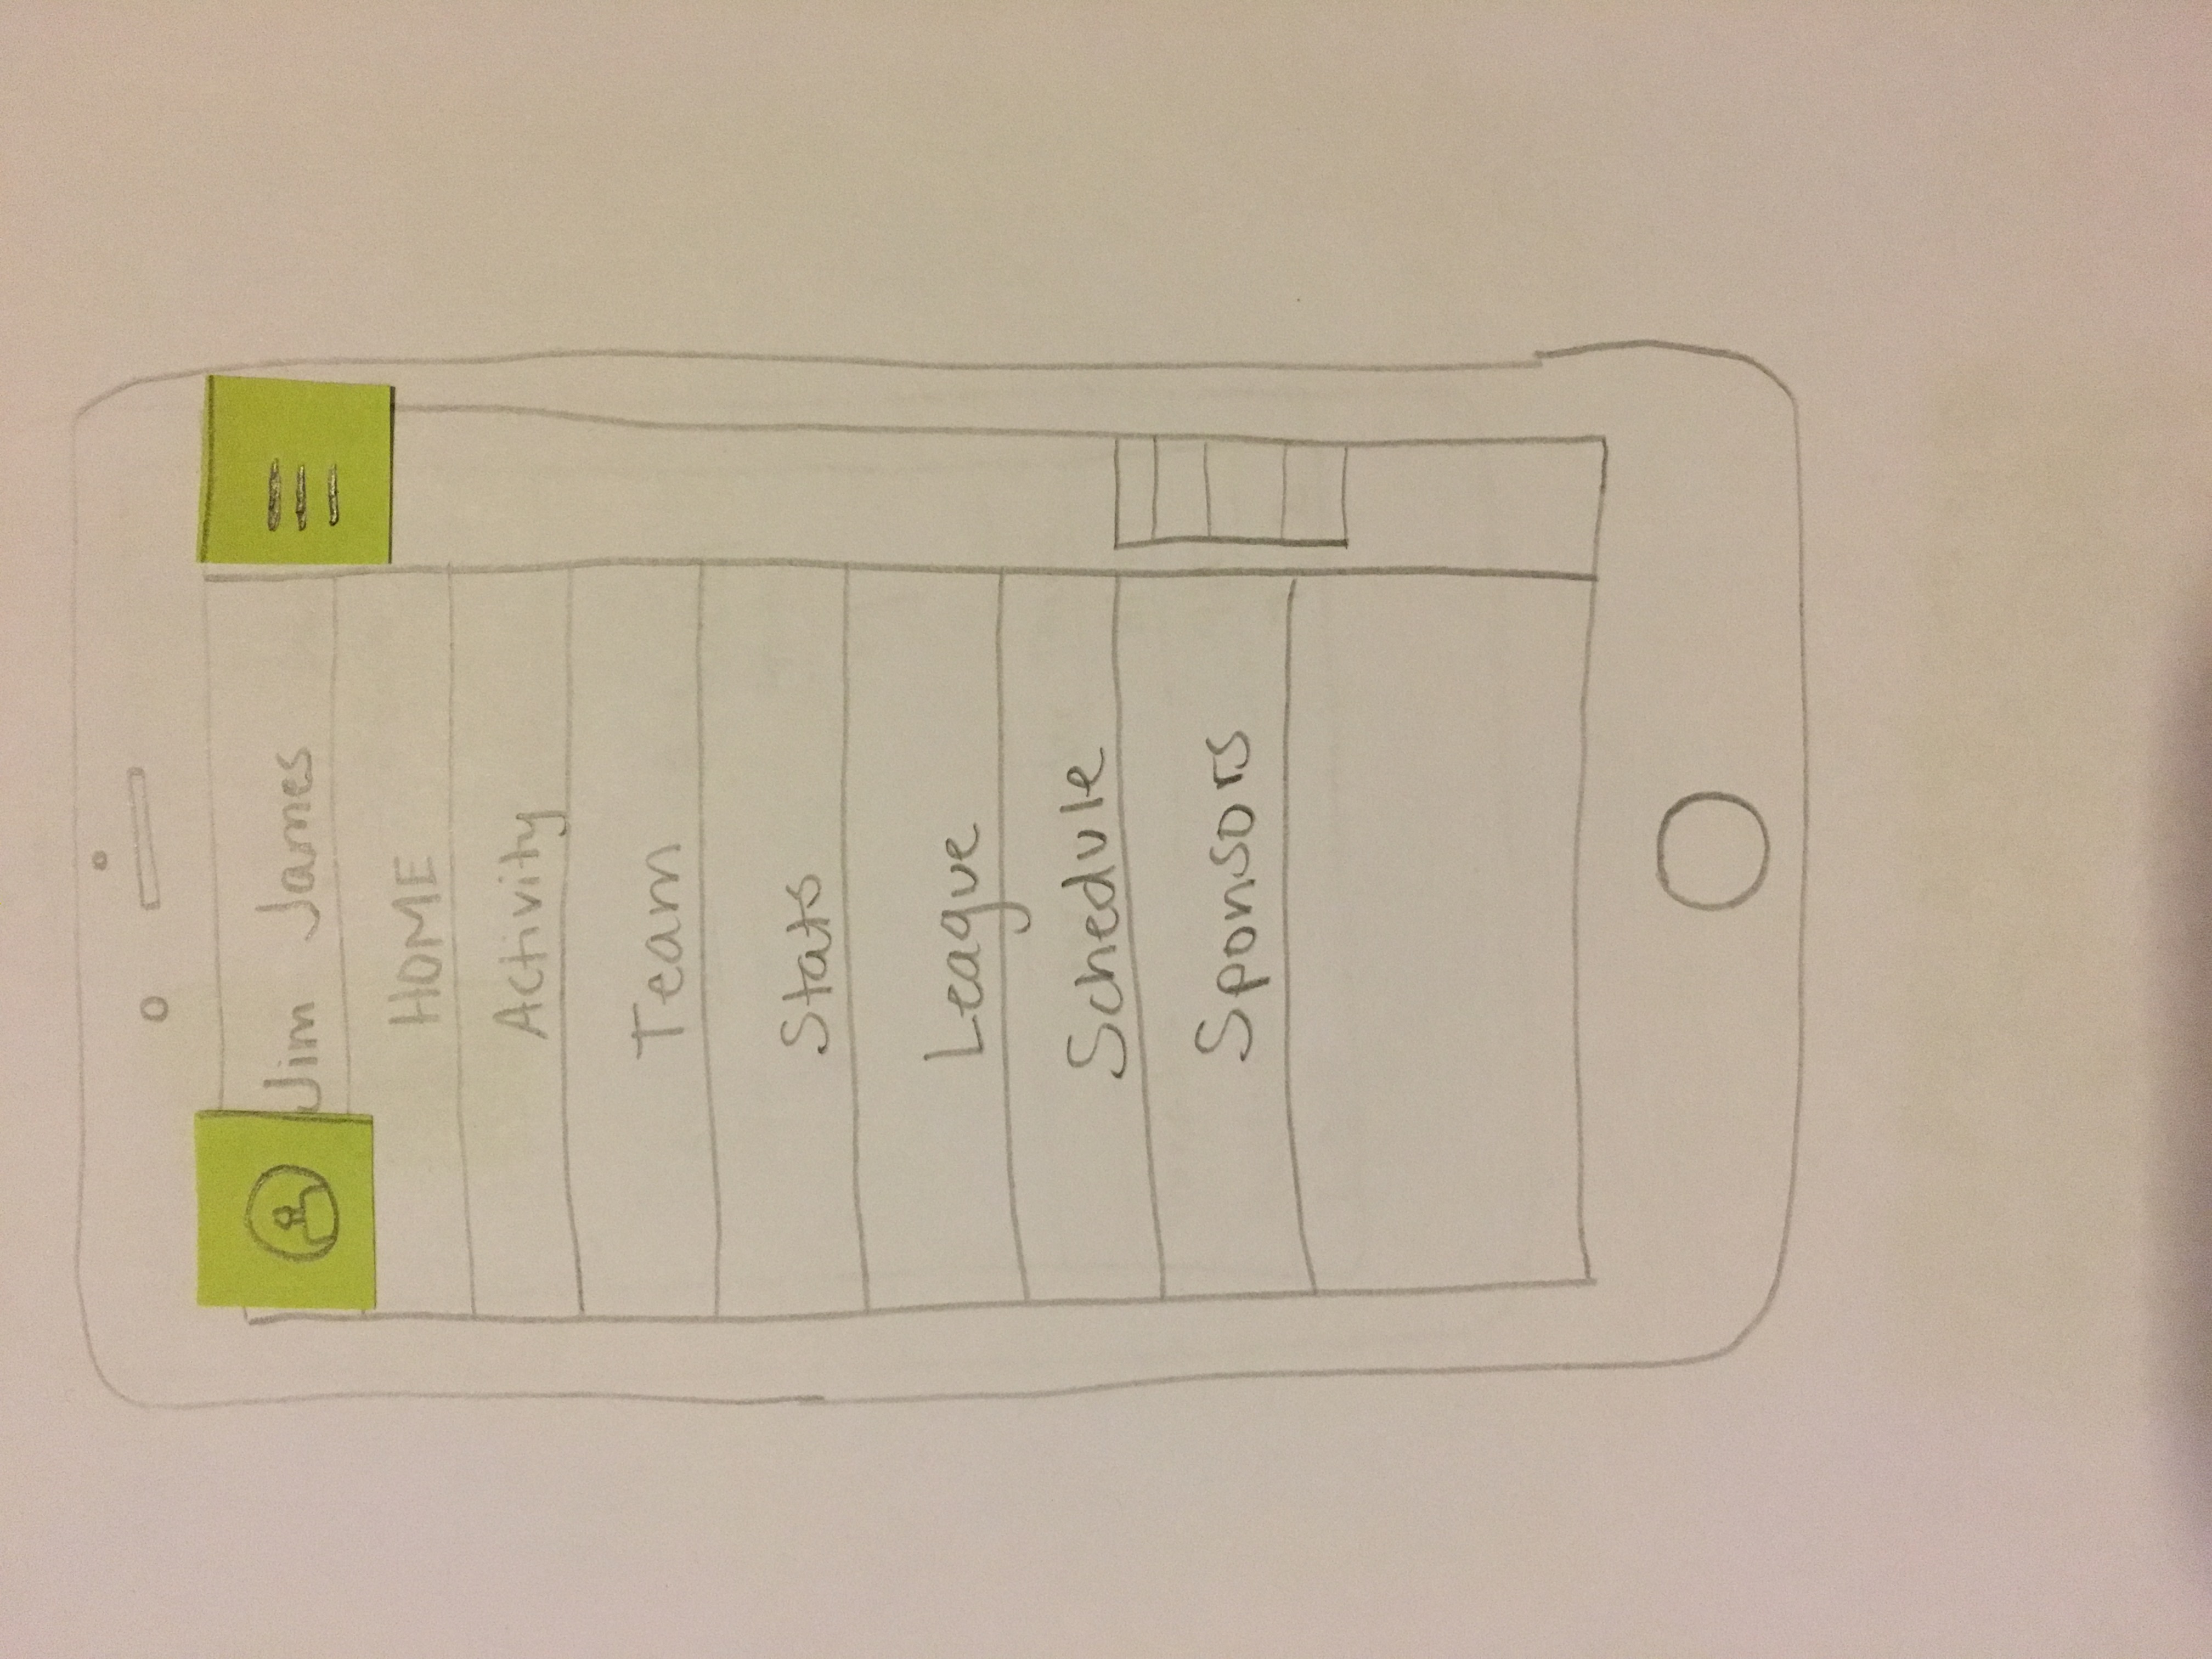 Jim James
HOME
Activity
Team
Stats
League
Schedule
Sponsors